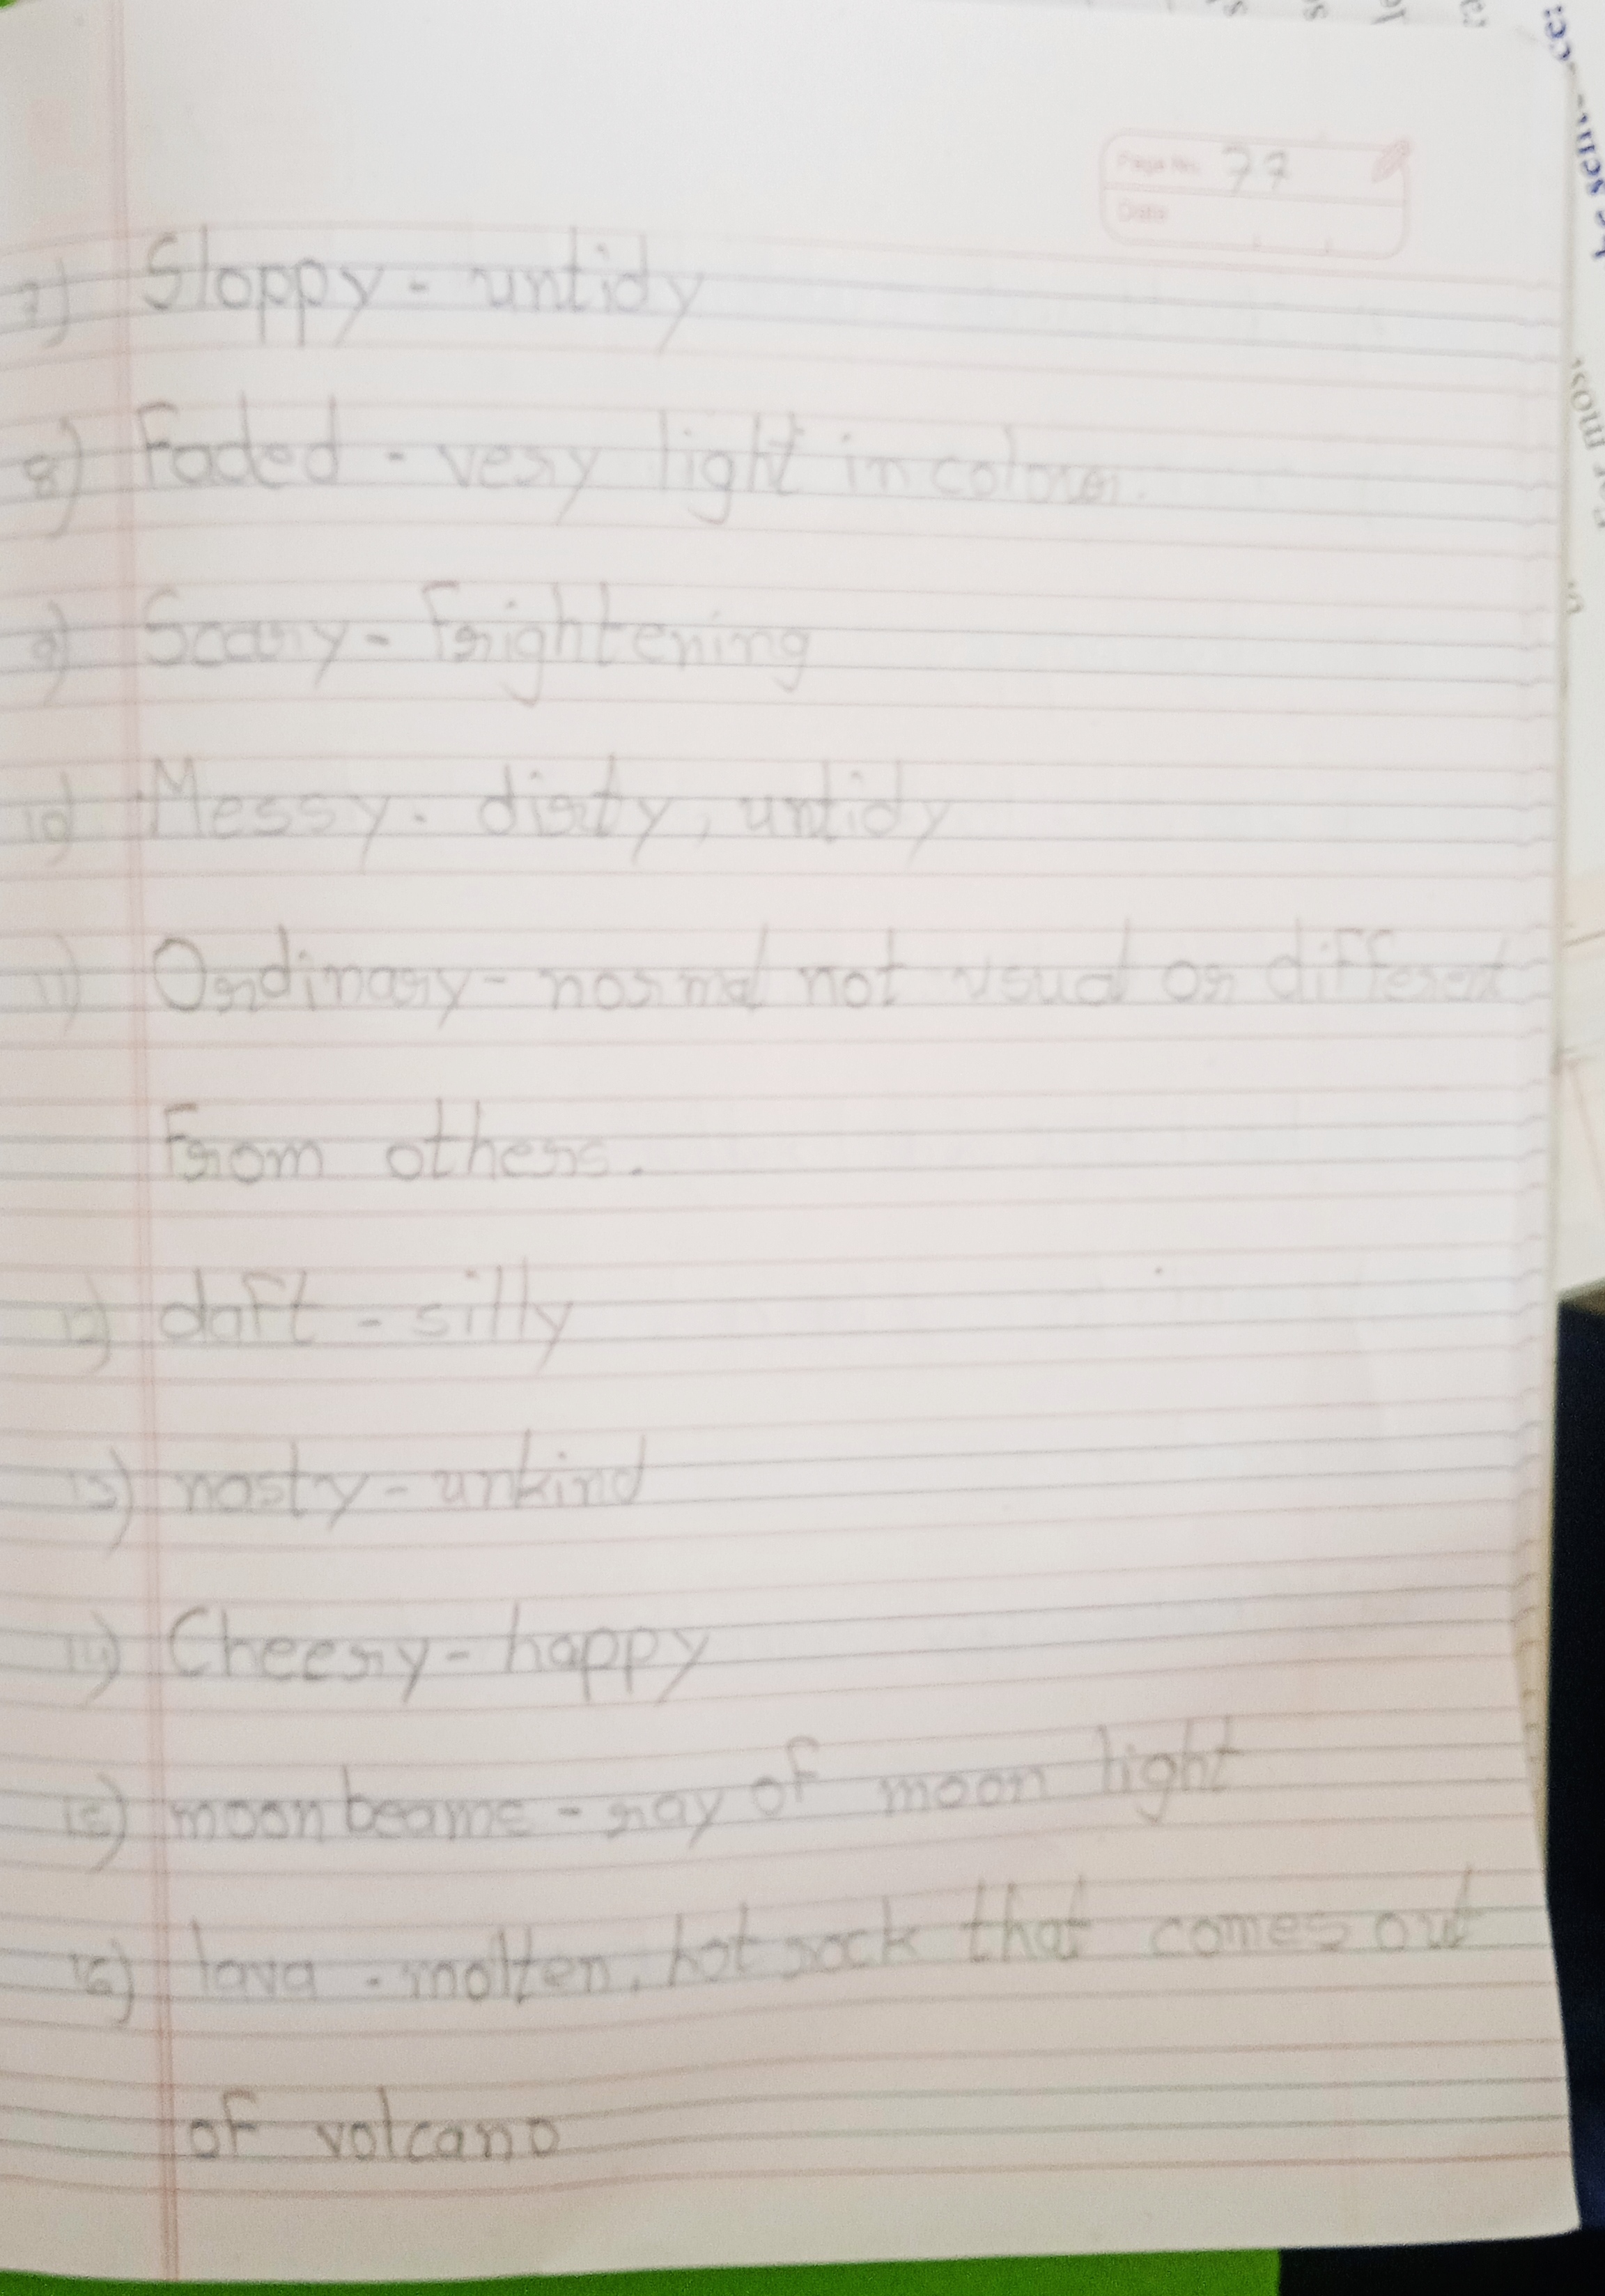 Page No. 77
Date
7) Sloppy - untidy
8) Faded - very light in colour.
9) Scary - Frightening
10) Messy - dirty, untidy
11) Ordinary - normal not usual or different
From others.
12) daft - silly
13) nasty - unkind
14) Cheery - happy
15) moon beams - ray of moon light
16) lava - molten, hot rock that comes out
of volcano